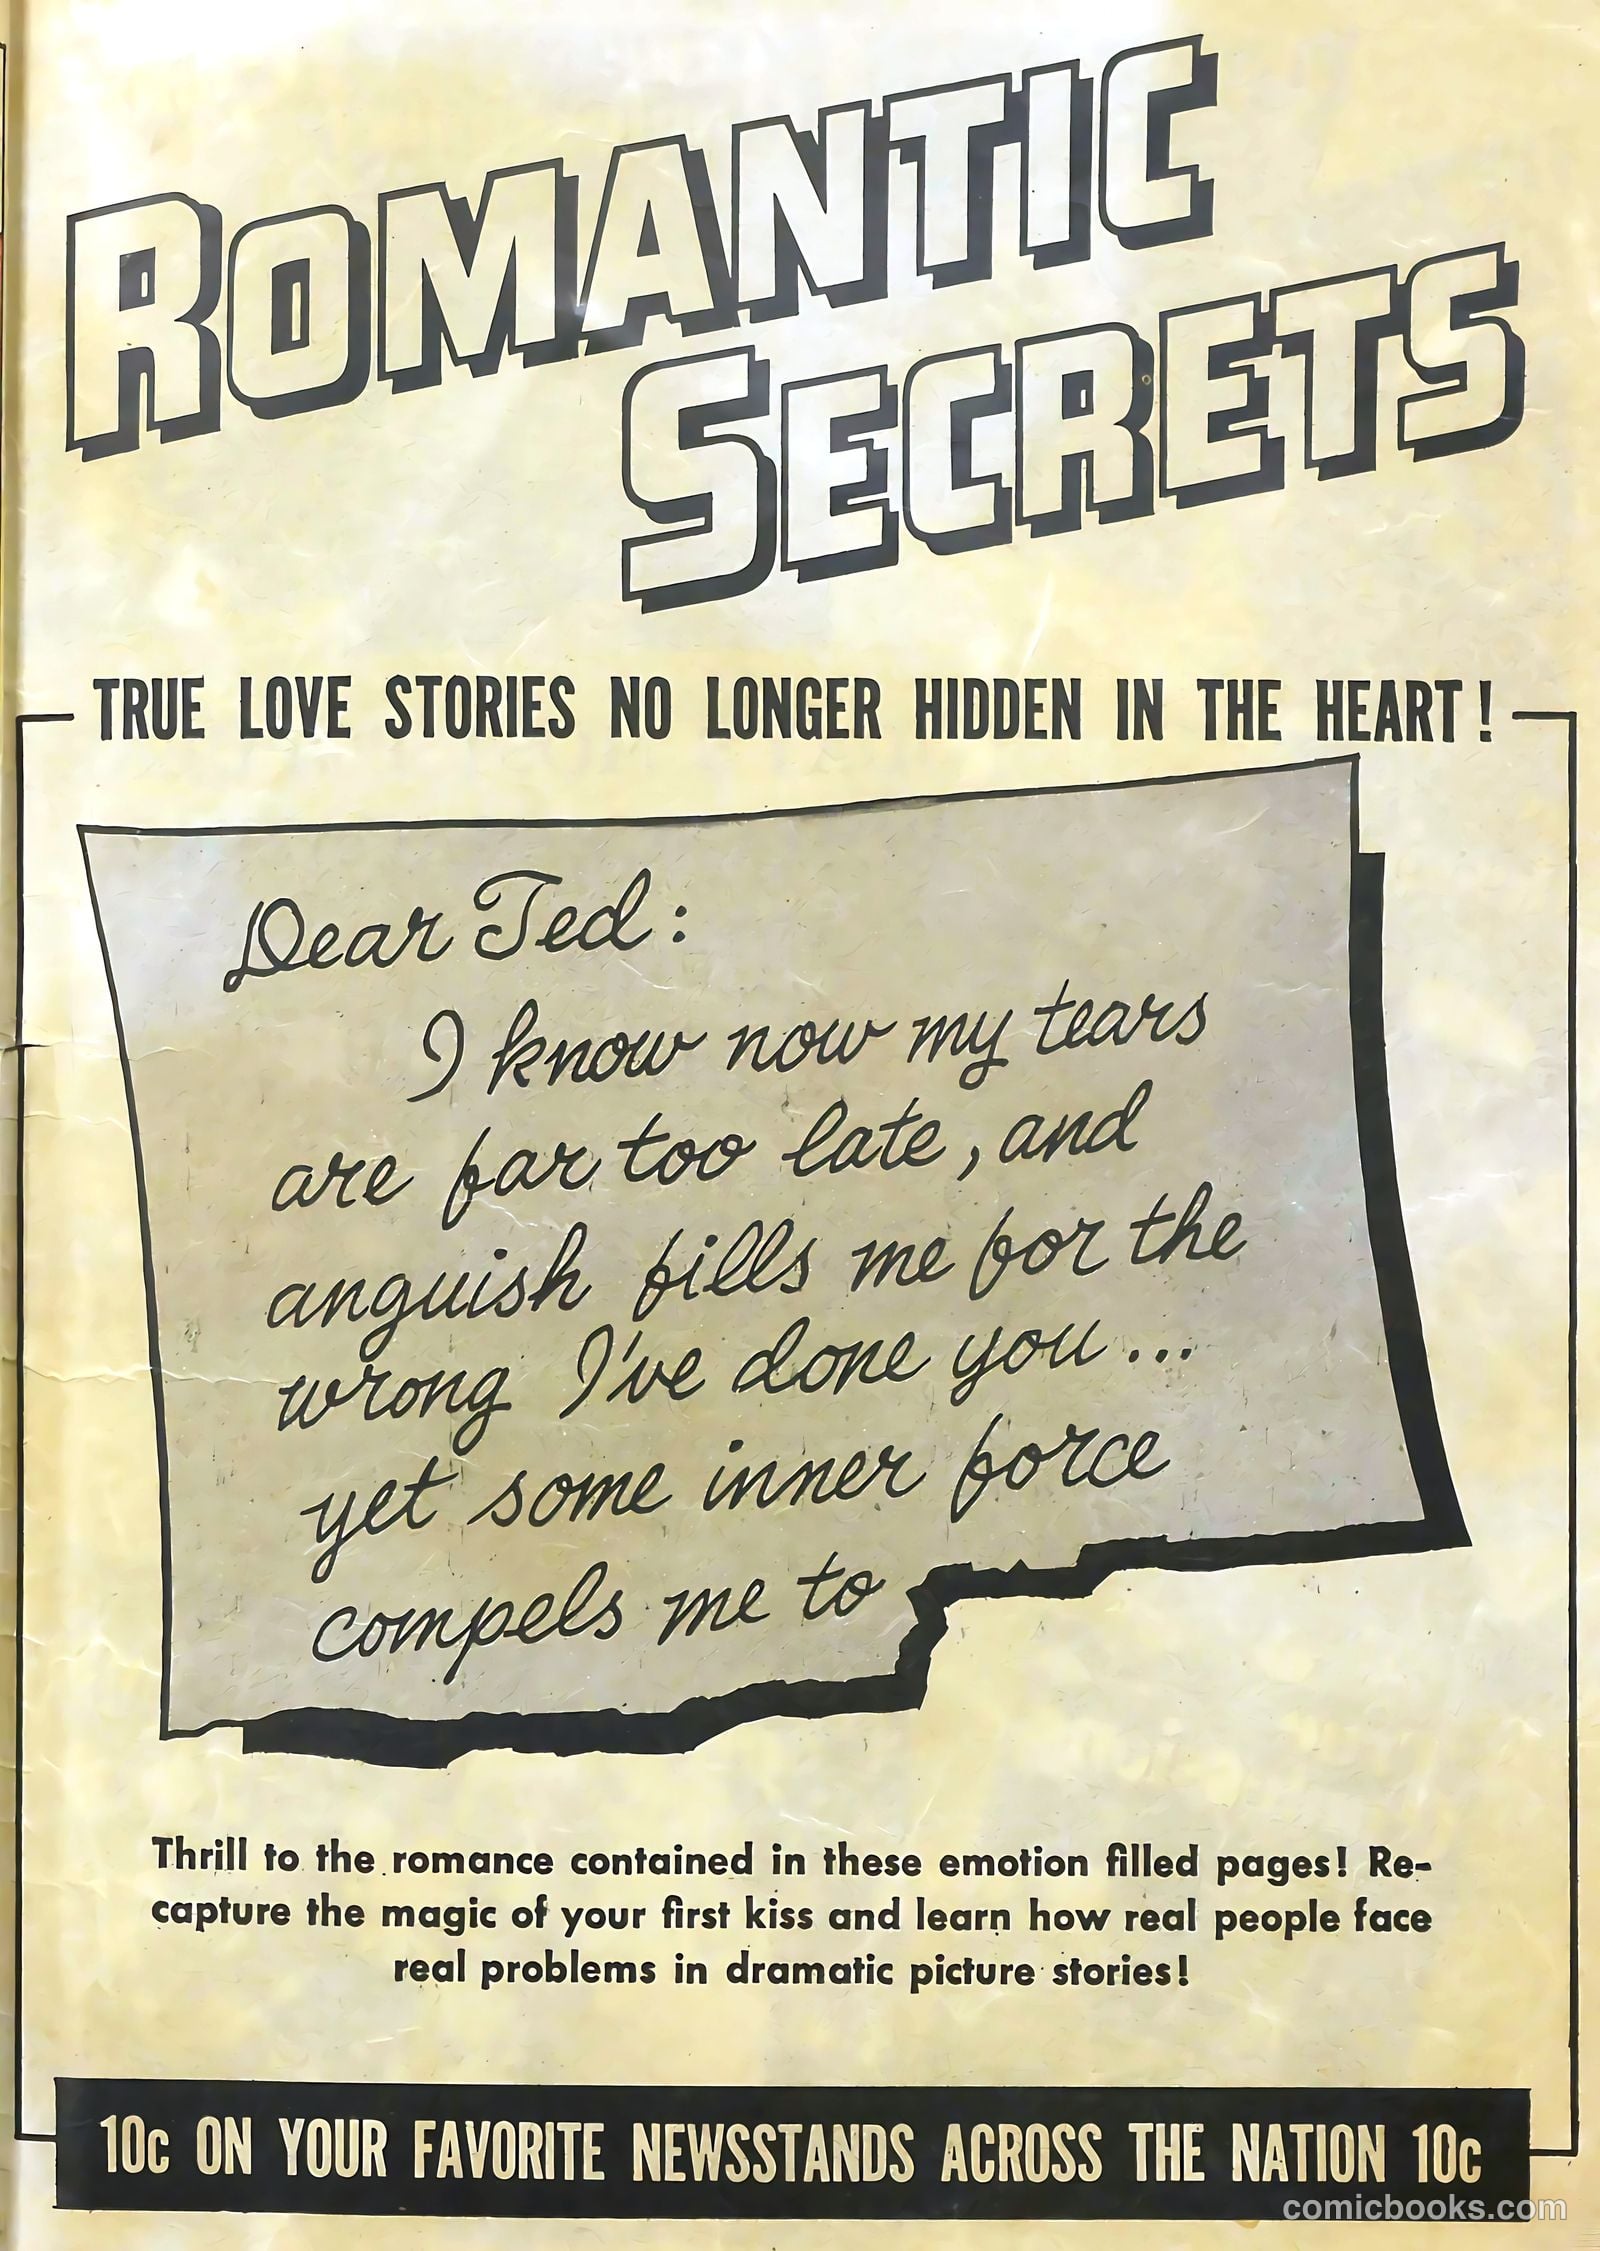 ROMANTIC
SECRETS
TRUE LOVE STORIES NO LONGER HIDDEN IN THE HEART!
Dear Ted:
I know now my tears
are far too late, and
anguish fills me for the
wrong I've done you...
yet some inner force
compels me to
Thrill to the romance contained in these emotion filled pages! Re-
capture the magic of your first kiss and learn how real people face
real problems in dramatic picture stories!
10c ON YOUR FAVORITE NEWSSTANDS ACROSS THE NATION 10c
comicbooks.com